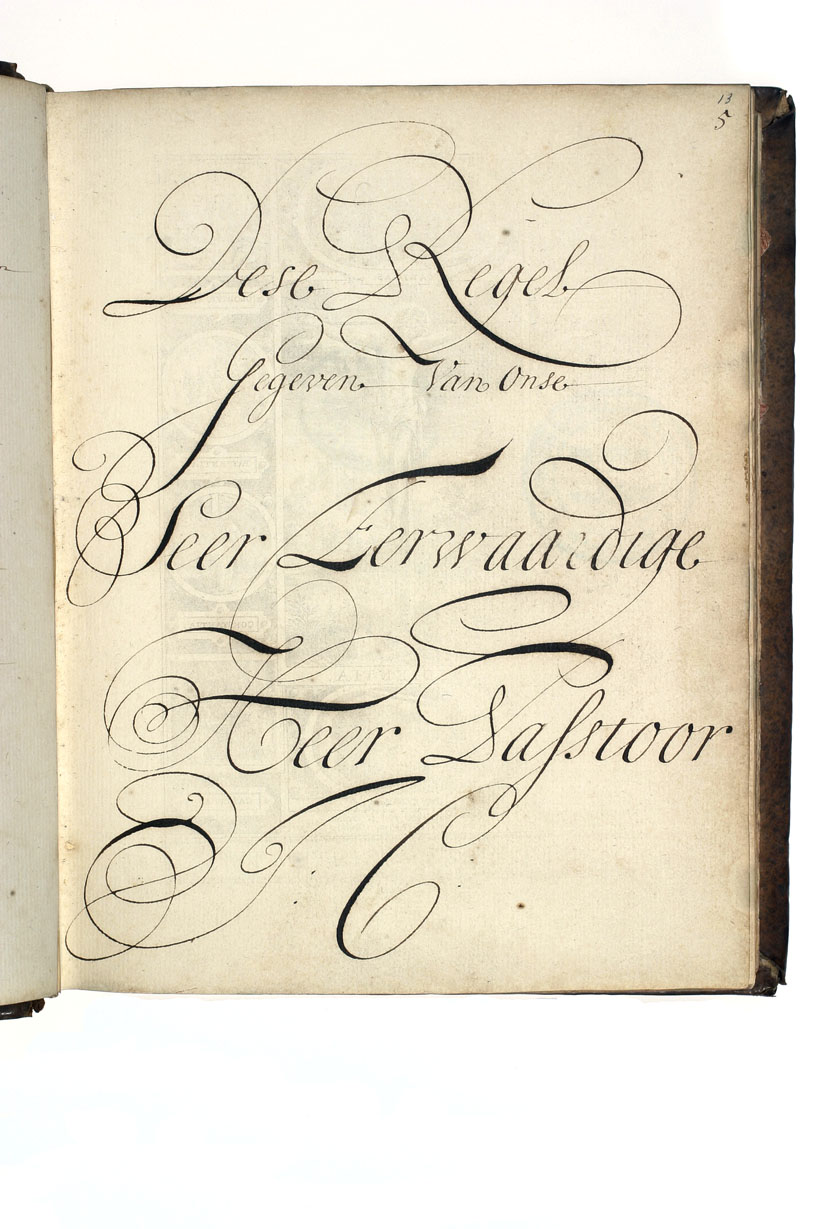 13
5
Dese Regel
Gegeven Van Onse
Seer Eerwaardige
Heer Passtoor
J C